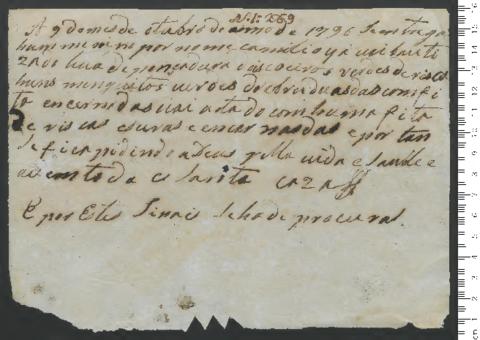 N. 1: 269
A 9 do mes de otubro de anno de 1796 Se entrega
hum menino por nome camilo ja
zado hua de pindura e as coeiros verdes de
huns menguitos verdes dobruiduas das com fi
ta encarnadas vai atado com huma fita
de riscas escuras e encarnasdas e por tan
se fica pidindo a Deus pella vida e saude e
aumento da e Santa caza
E por Estes Sinais Se hade procurar.